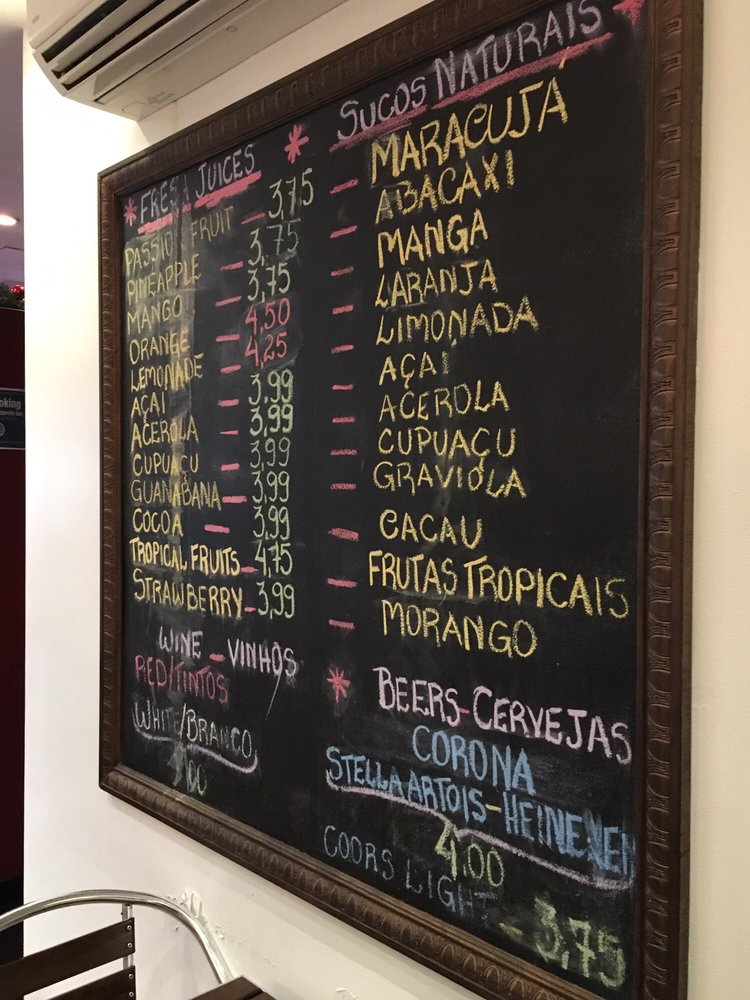 * FRESH JUICES *
PASSION FRUIT - 3,75
PINEAPPLE - 3,75
MANGO - 3,75
ORANGE - 4,50
LEMONADE - 4,25
AÇAI - 3,99
ACEROLA - 3,99
CUPUAÇU - 3,99
GUANABANA - 3,99
COCOA - 3,99
TROPICAL FRUITS - 4,75
STRAWBERRY - 3,99
WINE - VINHOS
RED/TINTOS
WHITE/BRANCO
SUCOS NATURAIS *
- MARACUJÁ
- ABACAXI
- MANGA
- LARANJA
- LIMONADA
- AÇAI
- ACEROLA
- CUPUAÇU
- GRAVIOLA
- CACAU
- FRUTAS TROPICAIS
- MORANGO
* BEERS-CERVEJAS
CORONA
STELLA ARTOIS-HEINEKEN
4.00
COORS LIGHT - 3,75
oking